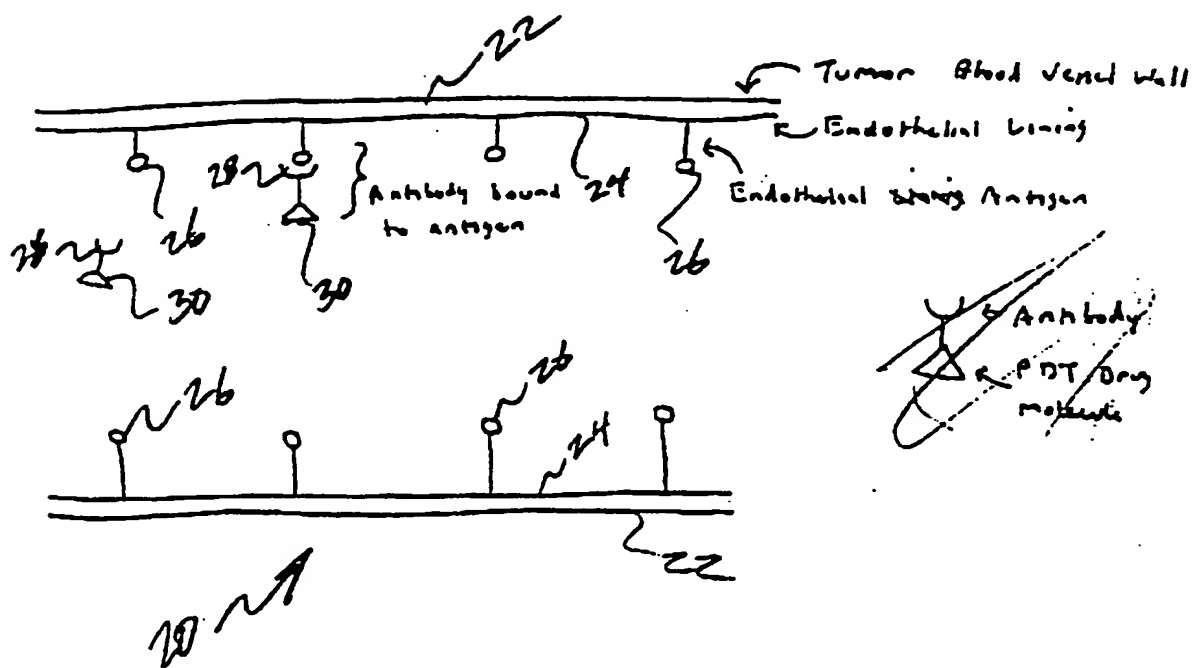 22
Tumor Blood Vessel Wall
Endothelial Lining
28
Antibody bound
to antigen
24
Endothelial Antigen
26
28
30
30
26
Antibody
PDT Drug
molecule
26
26
24
22
20